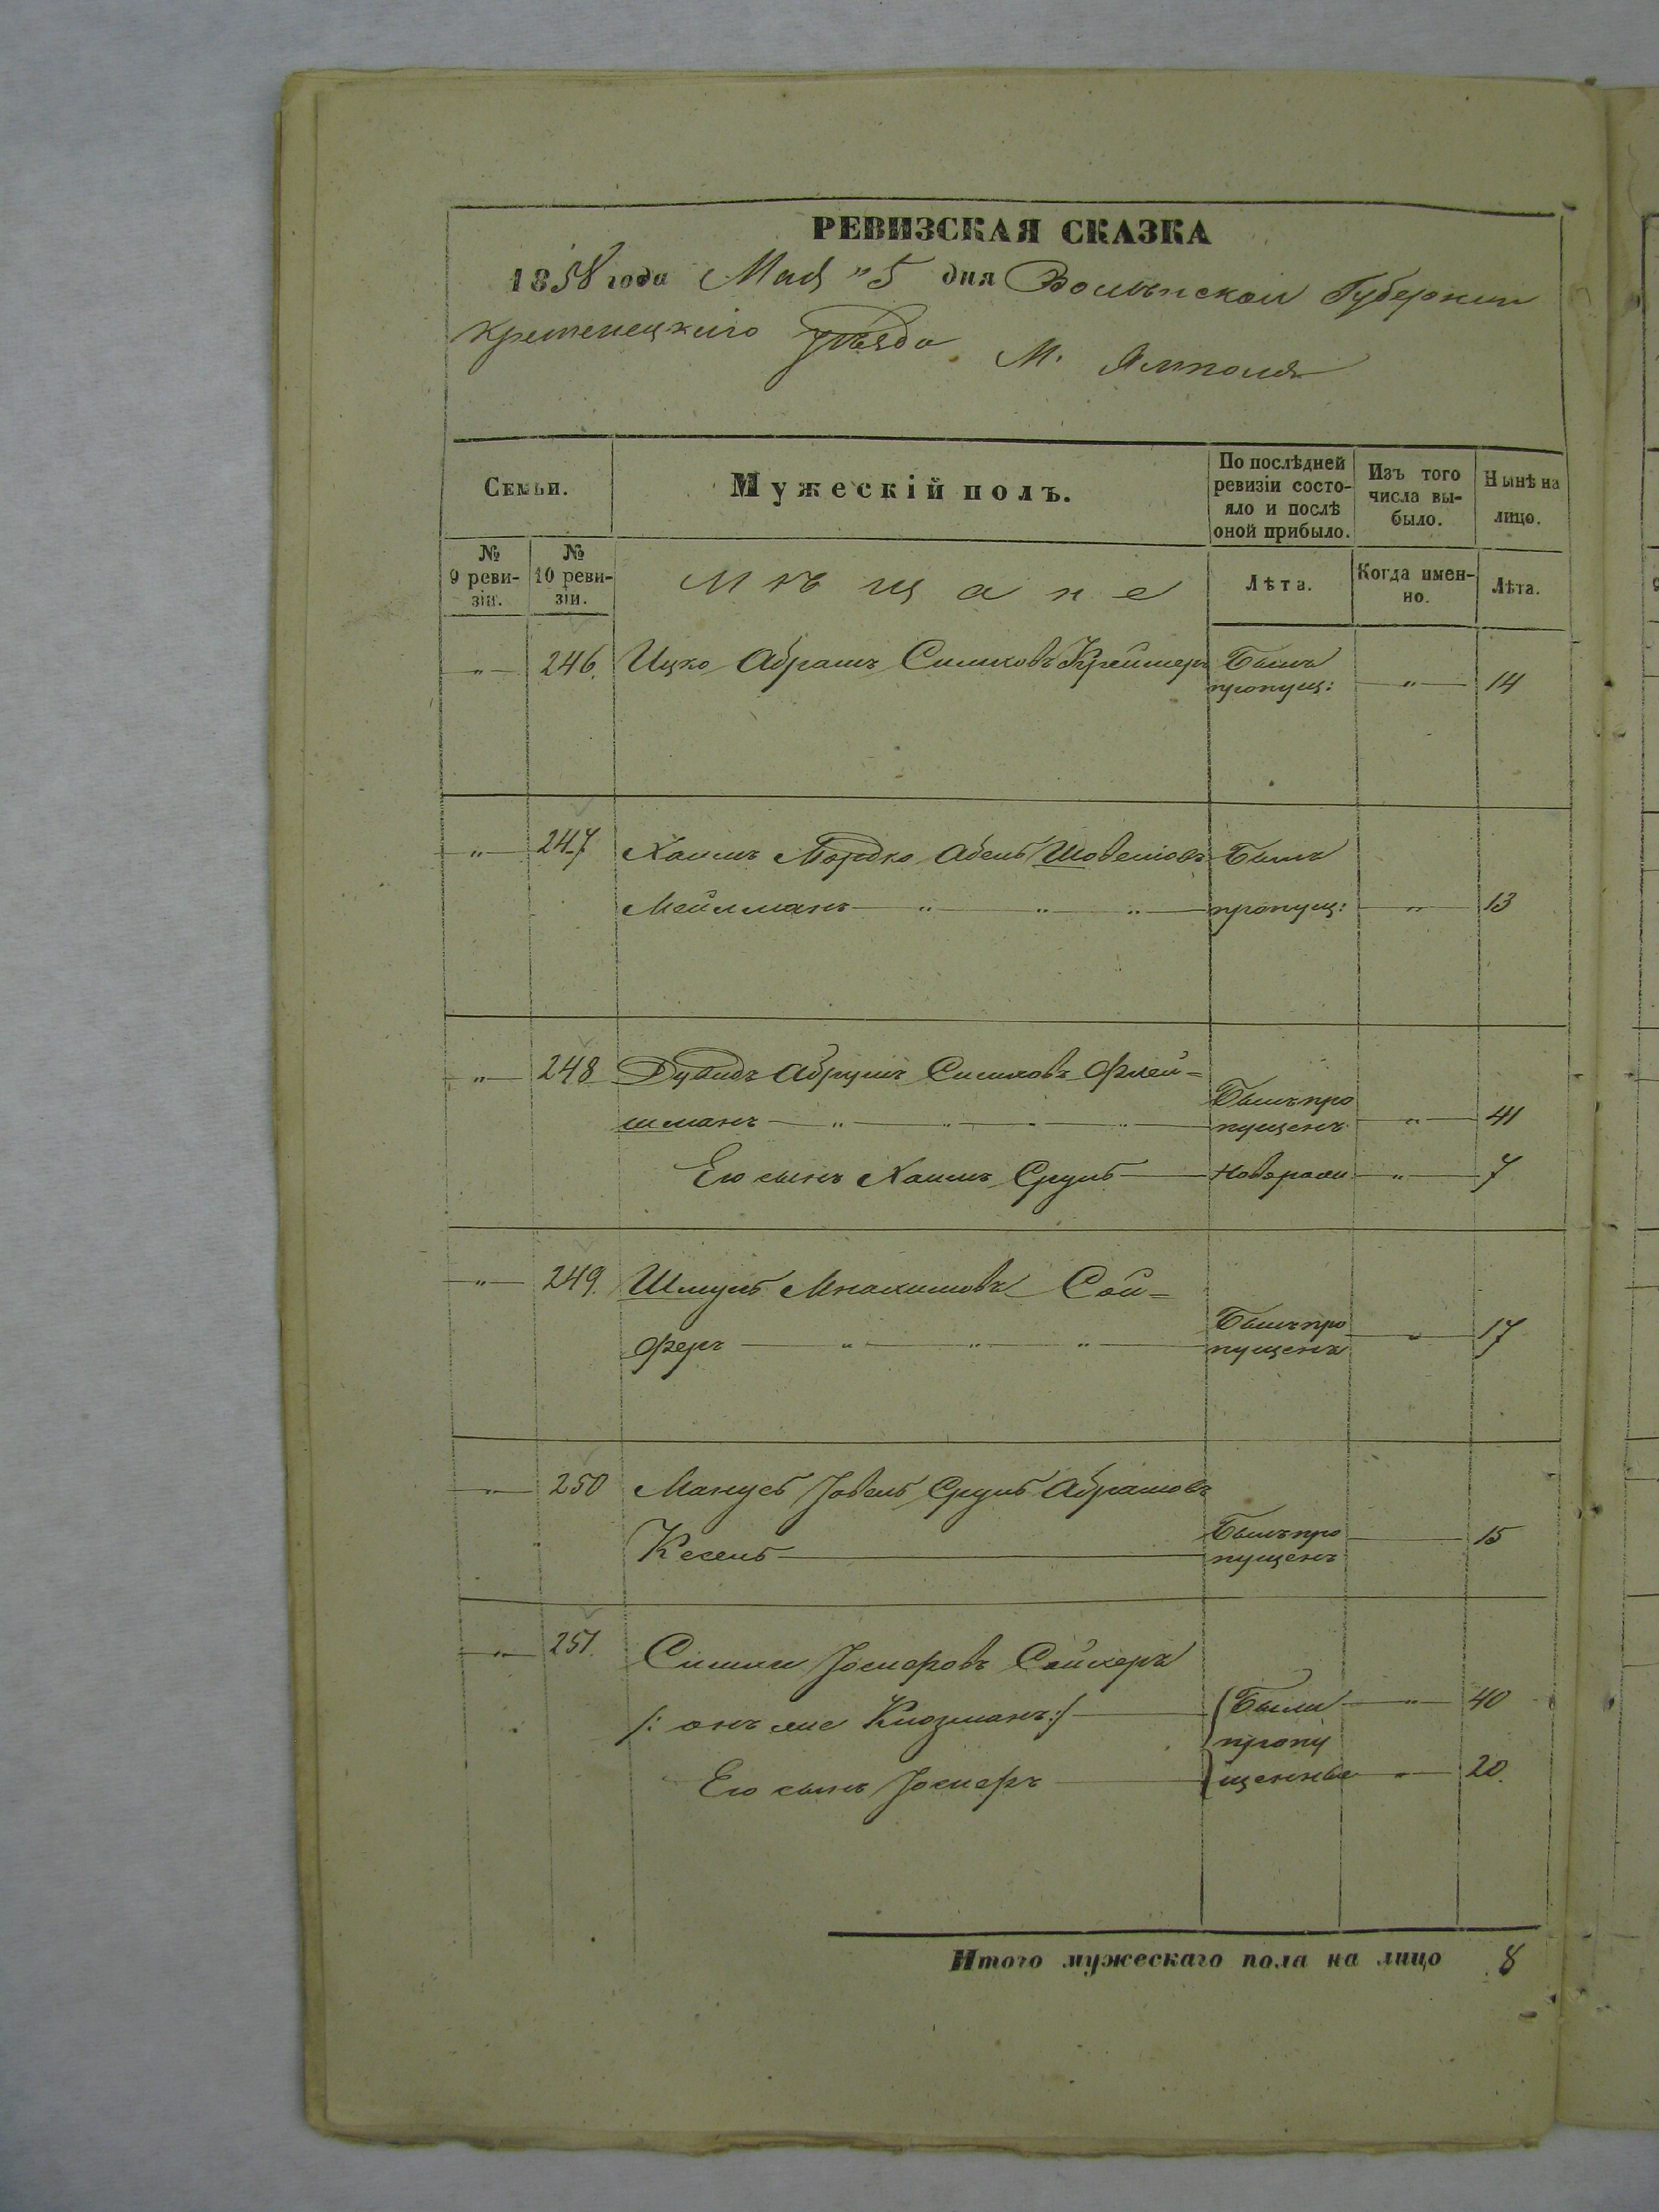 РЕВИЗСКАЯ СКАЗКА
1858 года Мая "5 дня Волынской Губернии
Кременецкаго Уѣзда М. Ямполя
Семьи.
Мужескій полъ.
По послѣдней ревизіи состо-
яло и послѣ
оной прибыло.
Изъ того
числа вы-
было.
Нынѣ на
лицо.
№
9 реви-
зіи.
№
10 реви-
зіи.
Мѣщане
Лѣта.
Когда имен-
но.
Лѣта.
" 246. Ицко Абрамъ Симховъ Былъ
пропущ: " 14
" 247 Хаимъ Мордко Былъ
Мейлманъ " " " пропущ: " 13
" 248 Дувидъ Абрумъ Симховъ Флей-
шманъ " " " " Былъ про
пущенъ " 41
Его сынъ Хаимъ Сруль " 7
" 249. Шмуль Сой-
феръ " " " Былъ про
пущенъ " 17
" 250 Сруль Абрамовъ
Кесель Былъ про
пущенъ 15
" 251. Іосиеровъ
/: онъ же :/ Были " 40
пропу
Его сынъ Іосиеръ щенные " 20.
Итого мужескаго пола на лицо 8